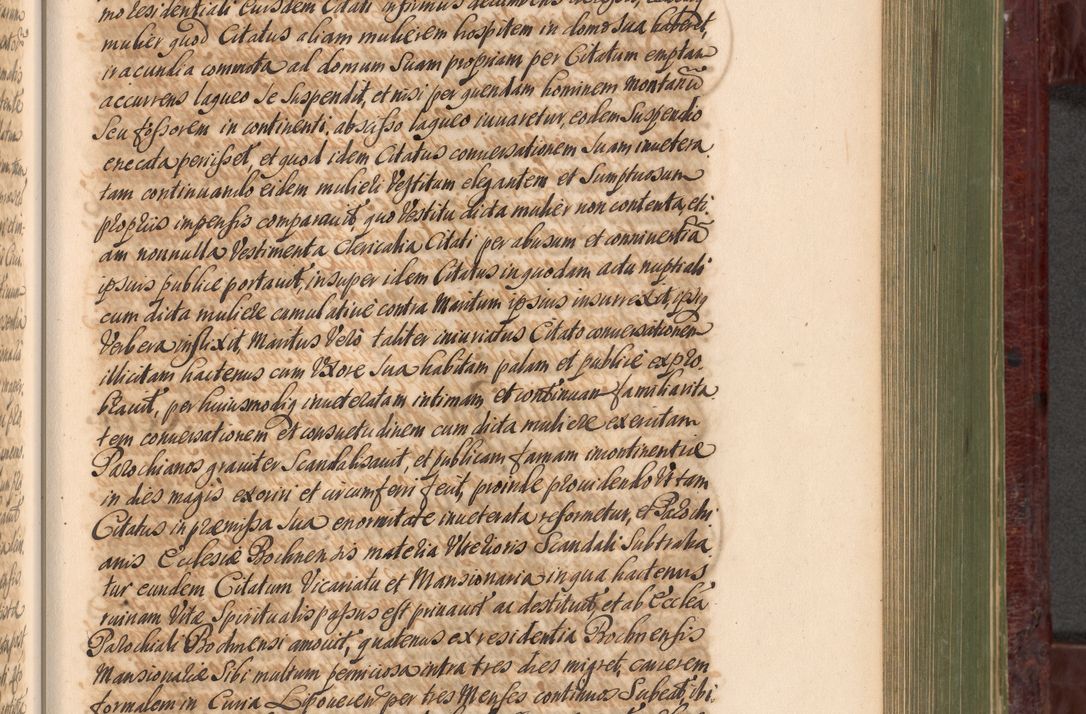 mo residentiali eiusdem Citati infirmus decumbens
mulier quod Citatus aliam mulierem hospitem in domo sua haberet,
iracundia commota ad domum suam propriam per Citatum emptam
accurrens laqueo se suspendit, et nisi per quendam hominem montanũ
seu fossorem in continenti, abscisso laqueo iuuaretur, eodem suspendio
enecata perijsset, et quod idem Citatus conuersationem suam inuetera
tam continuando eidem mulieri vestitum elegantem et sumptuosum
proprijs impensis comparauit, quo vestitu dicta mulier non contenta, eti
am nonnulla vestimenta clericalia Citati per abusum et conniuentiã
ipsius publice portauit, insuper idem Citatus in quodam actu nuptiali
cum dicta muliere cumulatiue contra Maritum ipsius insurrexit, ipsiq
verbera inflixit, Maritus vero taliter iniuriatus Citato conuersationem
illicitam hactenus cum Vxore sua habitam palam et publice expro
brauit, per huiusmodiq inueteratam intimam et continuam familiarita
tem conuersationem et consuetudinem cum dicta muliere exercitam
Parochianos grauiter scandalisauit, et publicam famam incontinentiæ
in dies magis exoriri et circumferri fecit, proinde prouidendo vt tam
Citatus in præmissa sua enormitate inueterata reformetur, et Parochi
anis Ecclesiæ Bochnensis materia vlterioris scandali subtraha
tur eundem Citatum Vicariatu et Mansionaria in qua hactenus
ruinam vitæ spiritualis passus est priuauit ac destituit, et ab Eccléa
Parochiali Bochnensi amouit, quatenus ex residentia Bochnensis
Mansionariæ sibi multum perniciosa intra tres dies migret, carcerem
formalem in Curia Lipouecen per tres Menses continuos subeat, ibi